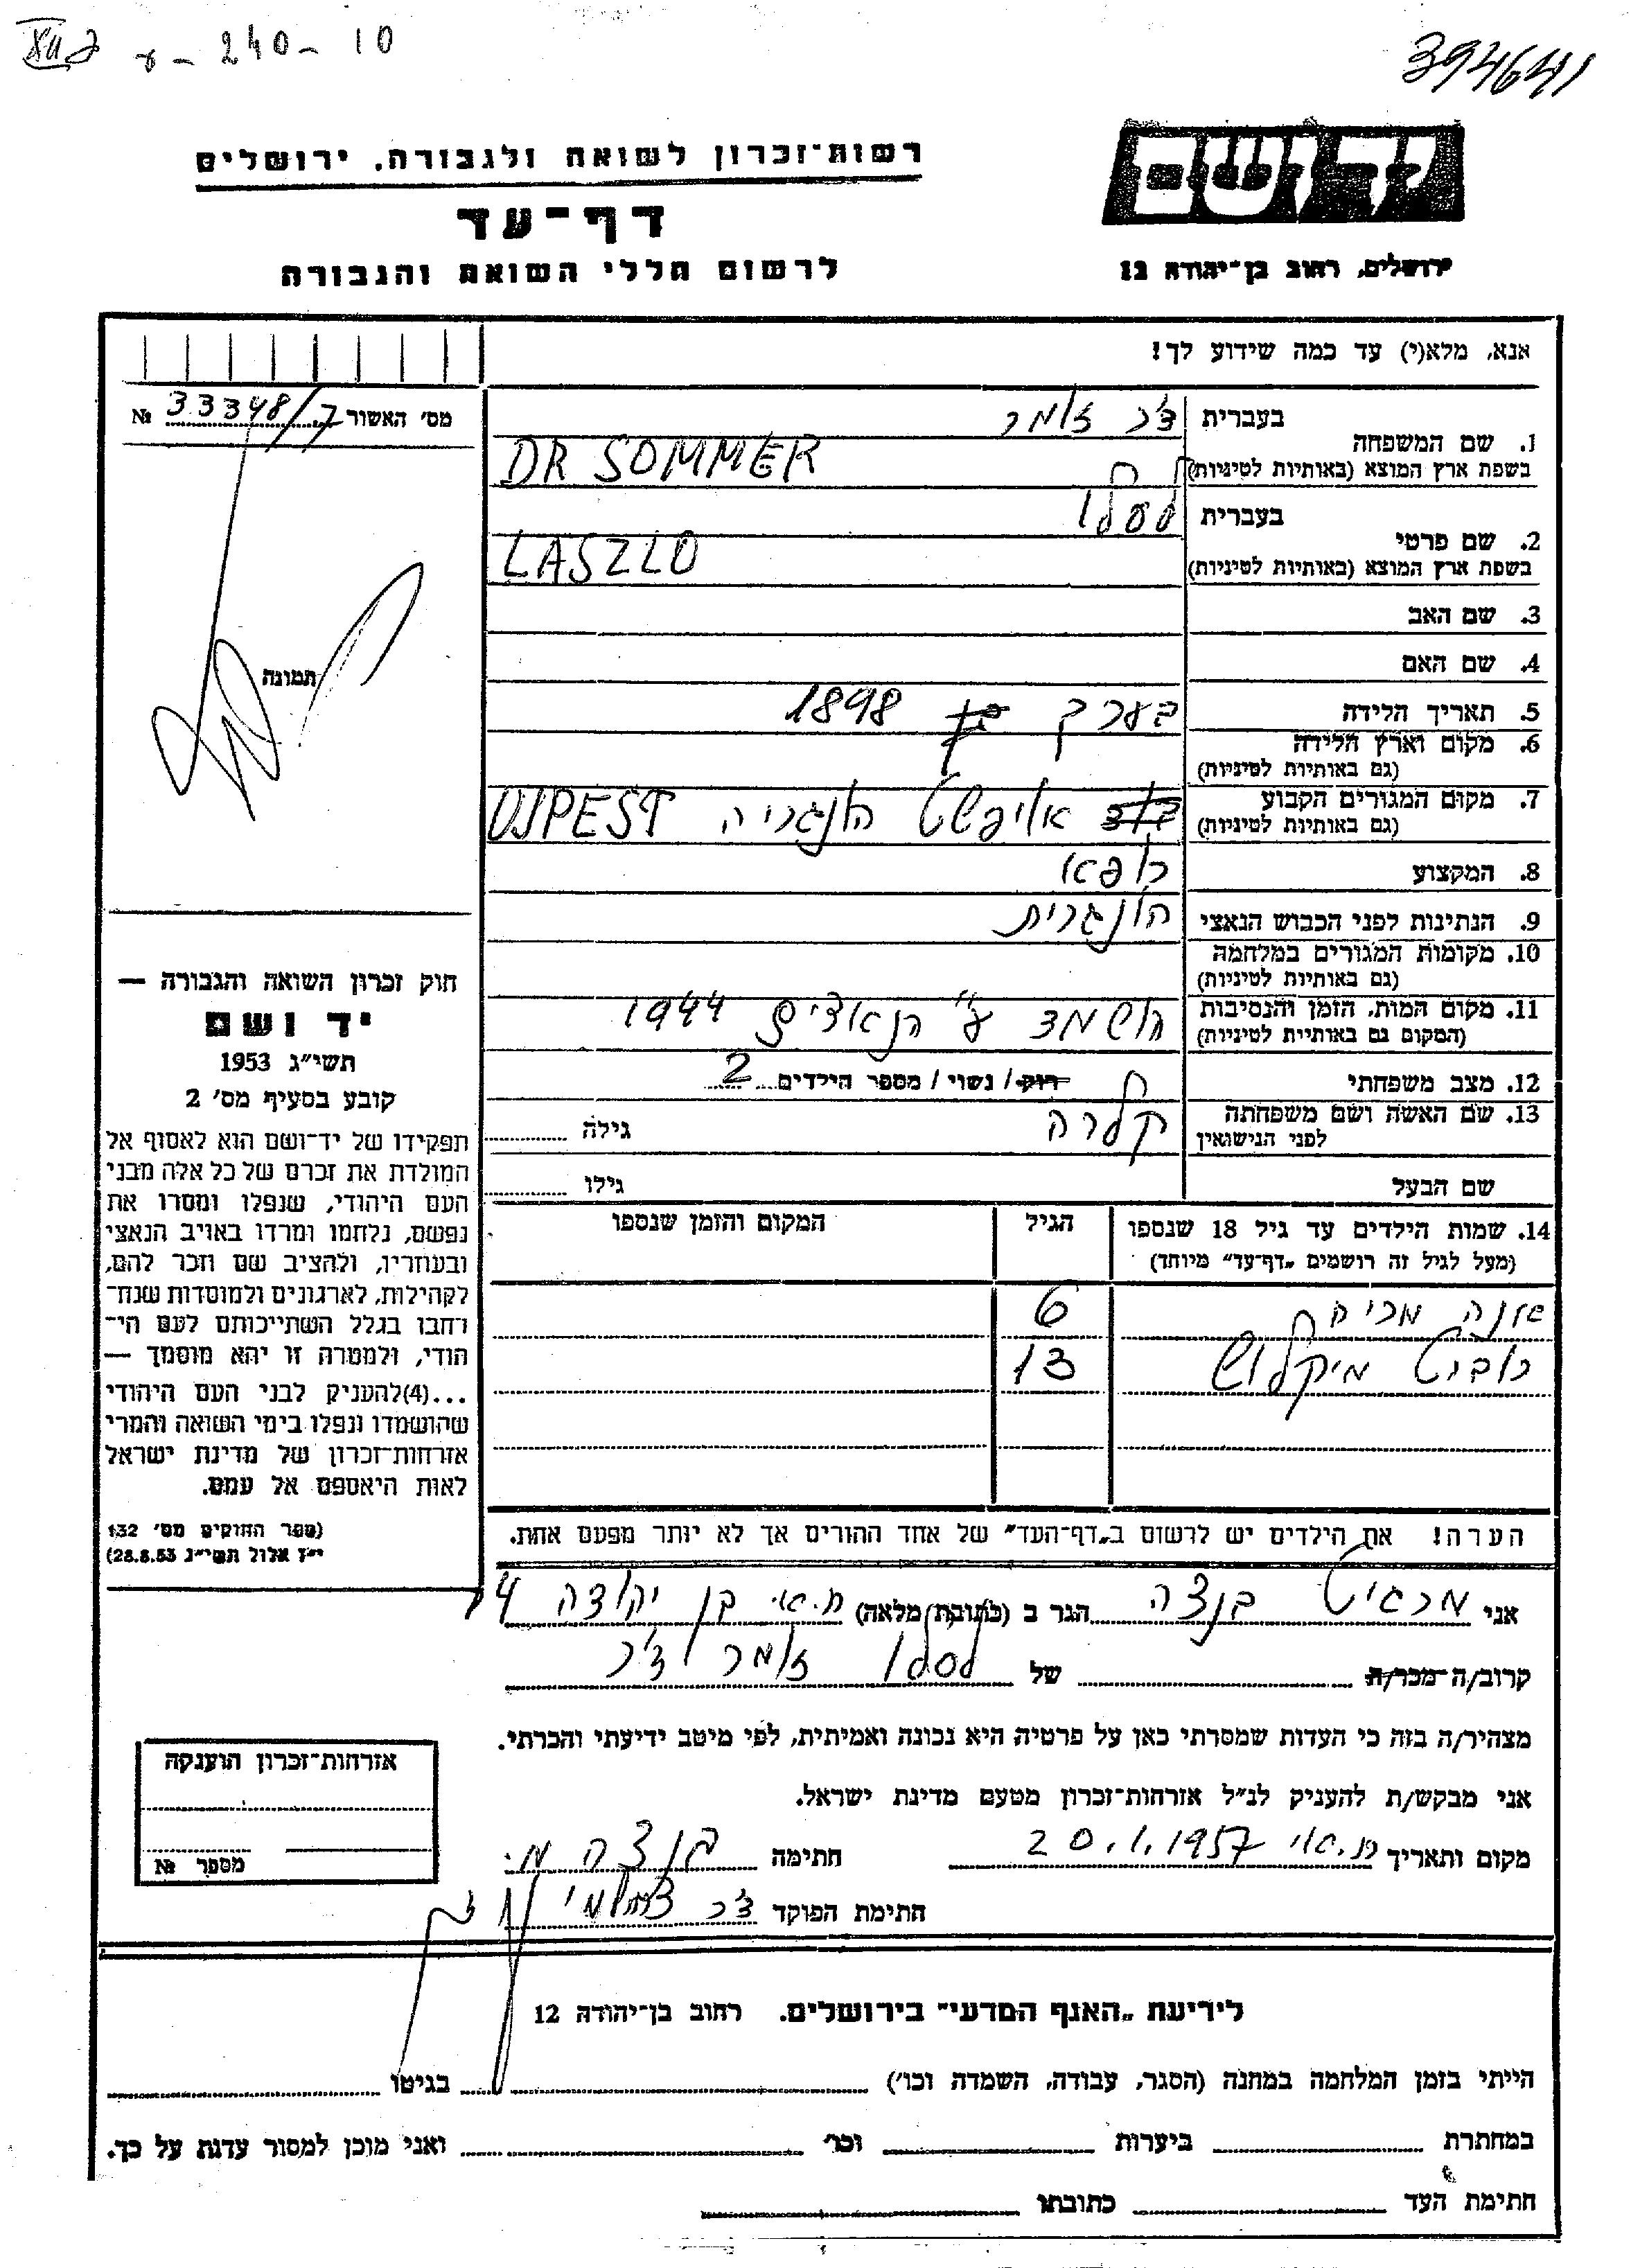 10 - 240 - ע
394641
רשות־זכרון לשואה ולגבורה, ירושלים
יד ושם
דף-עד
לרשום חללי השואה והגבורה
ירושלים, רחוב בן־יהודה 12
אנא, מלא(י) עד כמה שידוע לך!
מס׳ האשור 33348/7 №
1. שם המשפחה
בעברית ד״ר זומר
בשפת ארץ המוצא (באותיות לטיניות) DR SOMMER
2. שם פרטי
בעברית לסלו
בשפת ארץ המוצא (באותיות לטיניות) LASZLO
3. שם האב
4. שם האם
תמונה
5. תאריך הלידה בערך 1898
6. מקום וארץ הלידה
(גם באותיות לטיניות)
7. מקום המגורים הקבוע אויפשט הונגריה UJPEST
(גם באותיות לטיניות)
8. המקצוע רופא
9. הנתינות לפני הכבוש הנאצי הונגרית
10. מקומות המגורים במלחמה
(גם באותיות לטיניות)
11. מקום המות, הזמן והנסיבות הושמד ע״י הנאצים 1944
(המקום גם באותיות לטיניות)
12. מצב משפחתי רוק / נשוי / מספר הילדים 2
13. שם האשה ושם משפחתה קלרה גילה
לפני הנישואין
שם הבעל גילו
14. שמות הילדים עד גיל 18 שנספו הגיל המקום והזמן שנספו
(מעל לגיל זה רושמים „דף־עד” מיוחד)
אנה מריה 6
רוברט מיקלוש 13
הערה! את הילדים יש לרשום ב„דף־העד” של אחד ההורים אך לא יותר מפעם אחת.
חוק זכרון השואה והגבורה —
יד ושם
תשי״ג 1953
קובע בסעיף מס׳ 2
תפקידו של יד־ושם הוא לאסוף אל
המולדת את זכרם של כל אלה מבני
העם היהודי, שנפלו ומסרו את
נפשם, נלחמו ומרדו באויב הנאצי
ובעוזריו, ולהציב שם וזכר להם,
לקהילות, לארגונים ולמוסדות שנח־
רבו בגלל השתייכותם לעם הי־
הודי, ולמטרה זו יהא מוסמך —
...(4) להעניק לבני העם היהודי
שהושמדו ונפלו בימי השואה והמרי
אזרחות־זכרון של מדינת ישראל
לאות היאספם אל עמם.
(ספר החוקים מס׳ 132
י״ז אלול תשי״ג 28.8.53)
אני מרגיט בנצה הגר ב (כתובת מלאה) ת.א. בן יהודה 14
קרוב/ה מכר/ה של לסלו זומר ד״ר
מצהיר/ה בזה כי העדות שמסרתי כאן על פרטיה היא נכונה ואמיתית, לפי מיטב ידיעתי והכרתי.
אני מבקש/ת להעניק לנ״ל אזרחות־זכרון מטעם מדינת ישראל.
מקום ותאריך ת.א. 20.1.1957 חתימה בנצה מ.
חתימת הפוקד ד״ר
אזרחות־זכרון הוענקה
מספר №
לידיעת „האגף המדעי” בירושלים. רחוב בן־יהודה 12
הייתי בזמן המלחמה במחנה (הסגר, עבודה, השמדה וכו׳) בגיטו
במחתרת ביערות וכו׳ ואני מוכן למסור עדות על כך.
חתימת העד כתובתו